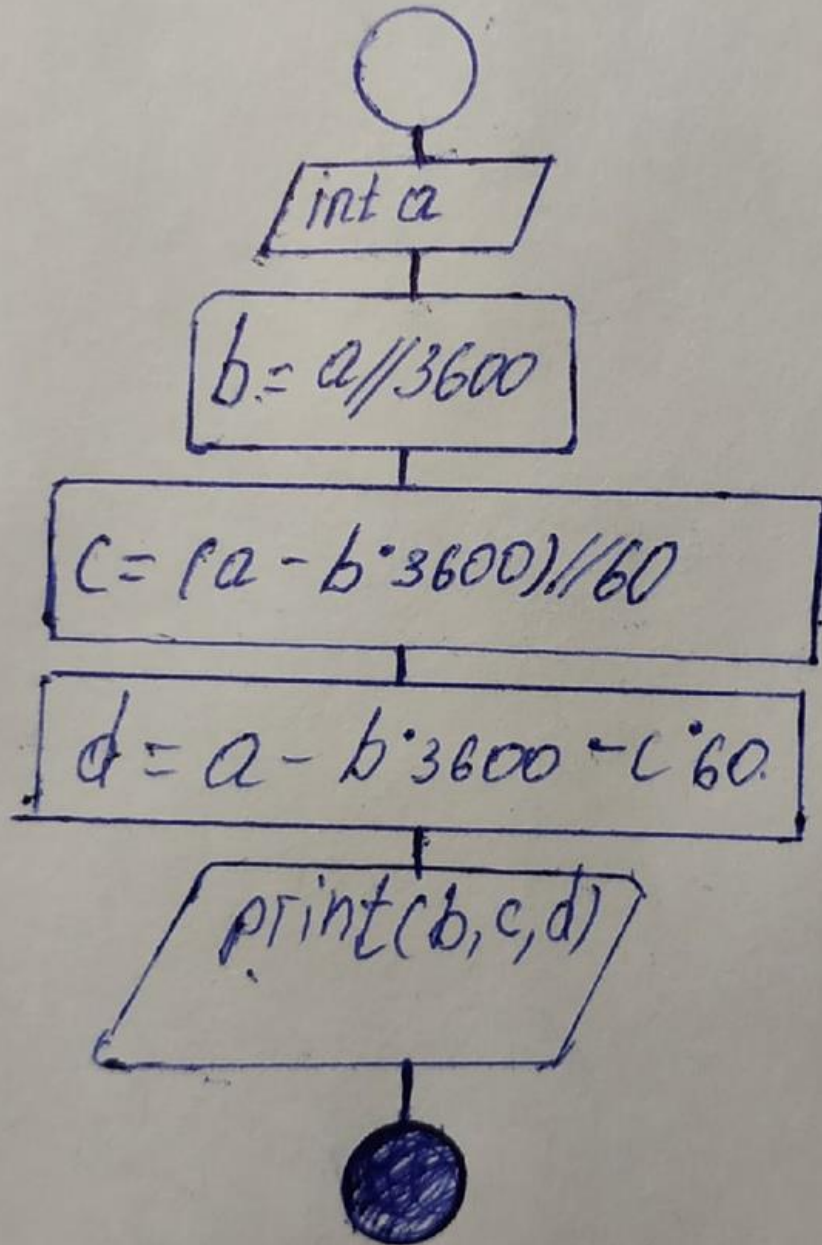 int a
b = a//3600
c = (a - b·3600)//60
d = a - b·3600 - c·60
print(b, c, d)